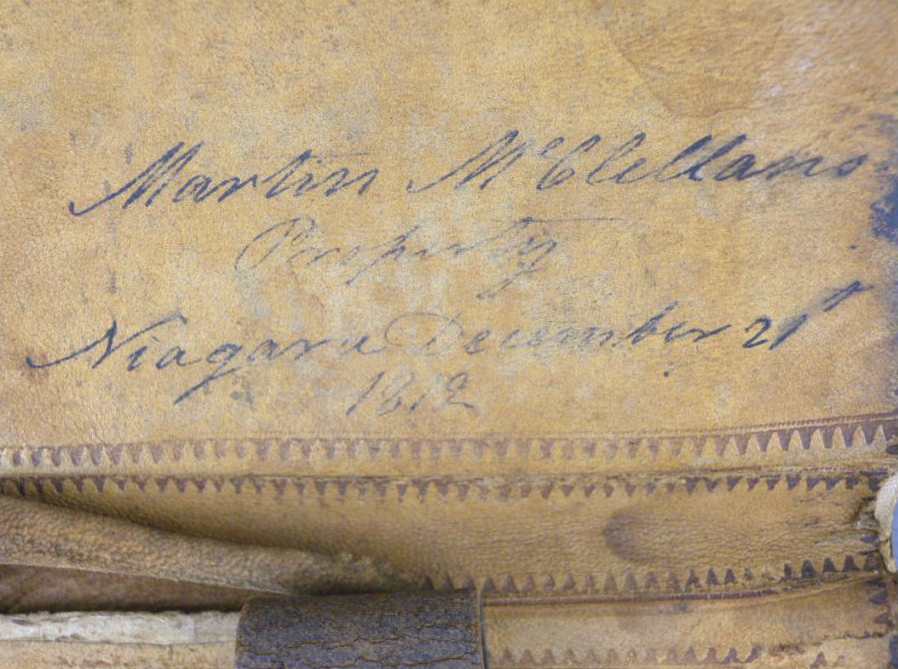 Martin McClellans
Property
Niagara December 21st
1812